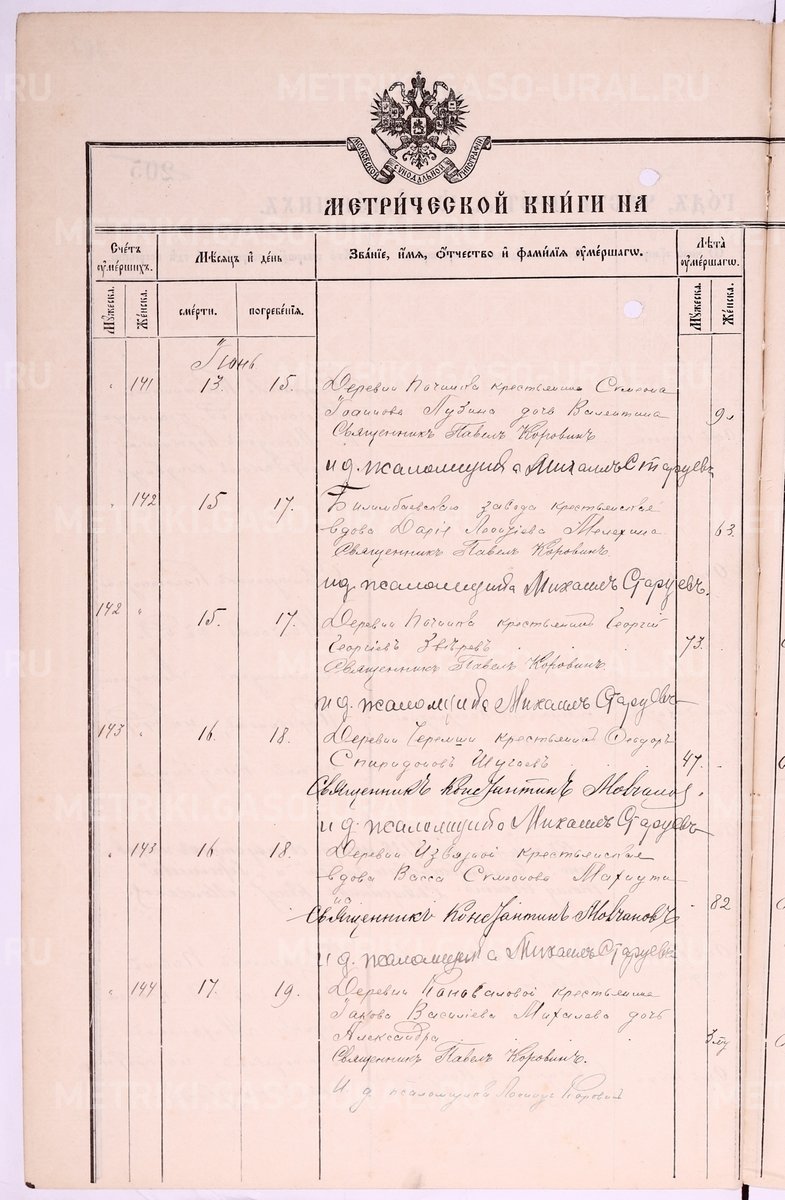 МОСКОВСКОЙ СУНОДАЛЬНОЙ ТИПОГРАФІИ
МЕТРИ́ЧЕСКОЙ КНИ́ГИ НА
Сче́тъ ᲂу҆ме́ршихъ.
Мѣ́сяцъ и҆ де́нь
Зва́нїе, и҆́мя, ѻ҆́тчество и҆ фами́лїя ᲂу҆ме́ршагѡ.
Лѣ́та ᲂу҆ме́ршагѡ.
Мꙋ́жеска.
Же́нска.
сме́рти.
погребе́нїя.
Мꙋ́жеска.
Же́нска.
Іюнь
141 13. 15. Деревни Починка крестьянина Симеона
Іоаннова Пузина дочь Валентина 9 л
Священникъ Павелъ Коровинъ
и д. псаломщика Михаилъ Старцевъ
142 15 17. Билимбаевскаго завода крестьянская
вдова Дарія Мелехина 63.
Священникъ Павелъ Коровинъ
и д. псаломщика Михаилъ Старцевъ.
142 15. 17. Деревни Починка крестьянинъ Георгій
Георгіевъ Звѣревъ 73.
Священникъ Павелъ Коровинъ
и д. псаломщика Михаилъ Старцевъ
143 16 18. Деревни Черемши крестьянинъ Ѳеодоръ
Спиридоновъ 47.
Священникъ Константинъ Мовчановъ
и д. псаломщика Михаилъ Старцевъ
143 16 18. Деревни Извязной крестьянская
вдова Васса Симеонова Махнути
на 82
Священникъ Константинъ Мовчановъ
и д. псаломщика Михаилъ Старцевъ
144 17. 19. Деревни Коноваловой крестьянина
Іакова Василіева Михалева дочь
Александра 3 м
Священникъ Павелъ Коровинъ.
И. д. псаломщика Коровинъ